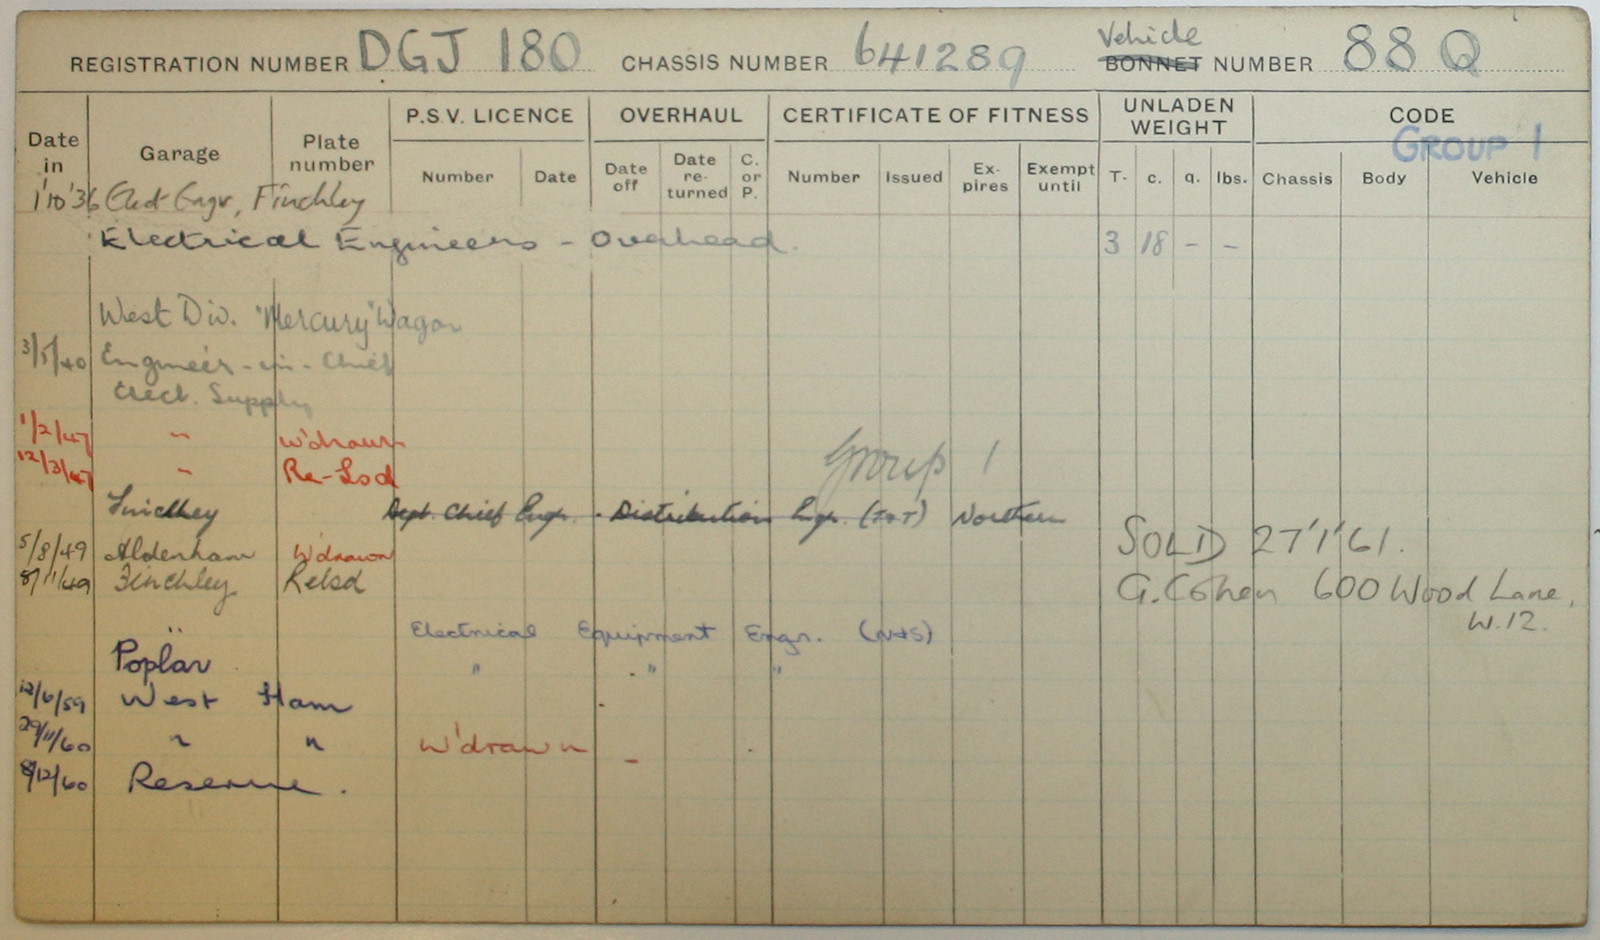 REGISTRATION NUMBER DGJ 180 CHASSIS NUMBER 641289 Vehicle BONNET NUMBER 88 Q
Date in Garage Plate number P.S.V. LICENCE OVERHAUL CERTIFICATE OF FITNESS UNLADEN WEIGHT CODE
GROUP 1
Number Date Date off Date re-turned C. or P. Number Issued Ex-pires Exempt until T. c. q. lbs. Chassis Body Vehicle
1'10'36 Elect Engr, Finchley
Electrical Engineers - Overhead. 3 18 - -
West Div. "Mercury" Wagon
3/5/40 Engineer-in-Chief
Elect. Supply
1/2/47 " W'drawn
12/3/47 " Re-Lsd Group 1
Finchley Dept. Chief Engr. - Distribution Engr. Northern
SOLD 27'1'61.
5/8/49 Aldenham W'drawn
8/11/49 Finchley Relsd G. Cohen 600 Wood Lane,
W.12.
Electrical Equipment Engr. (N&S)
Poplar " " "
12/6/59 West Ham
29/11/60 " " W'drawn
8/12/60 Reserve.